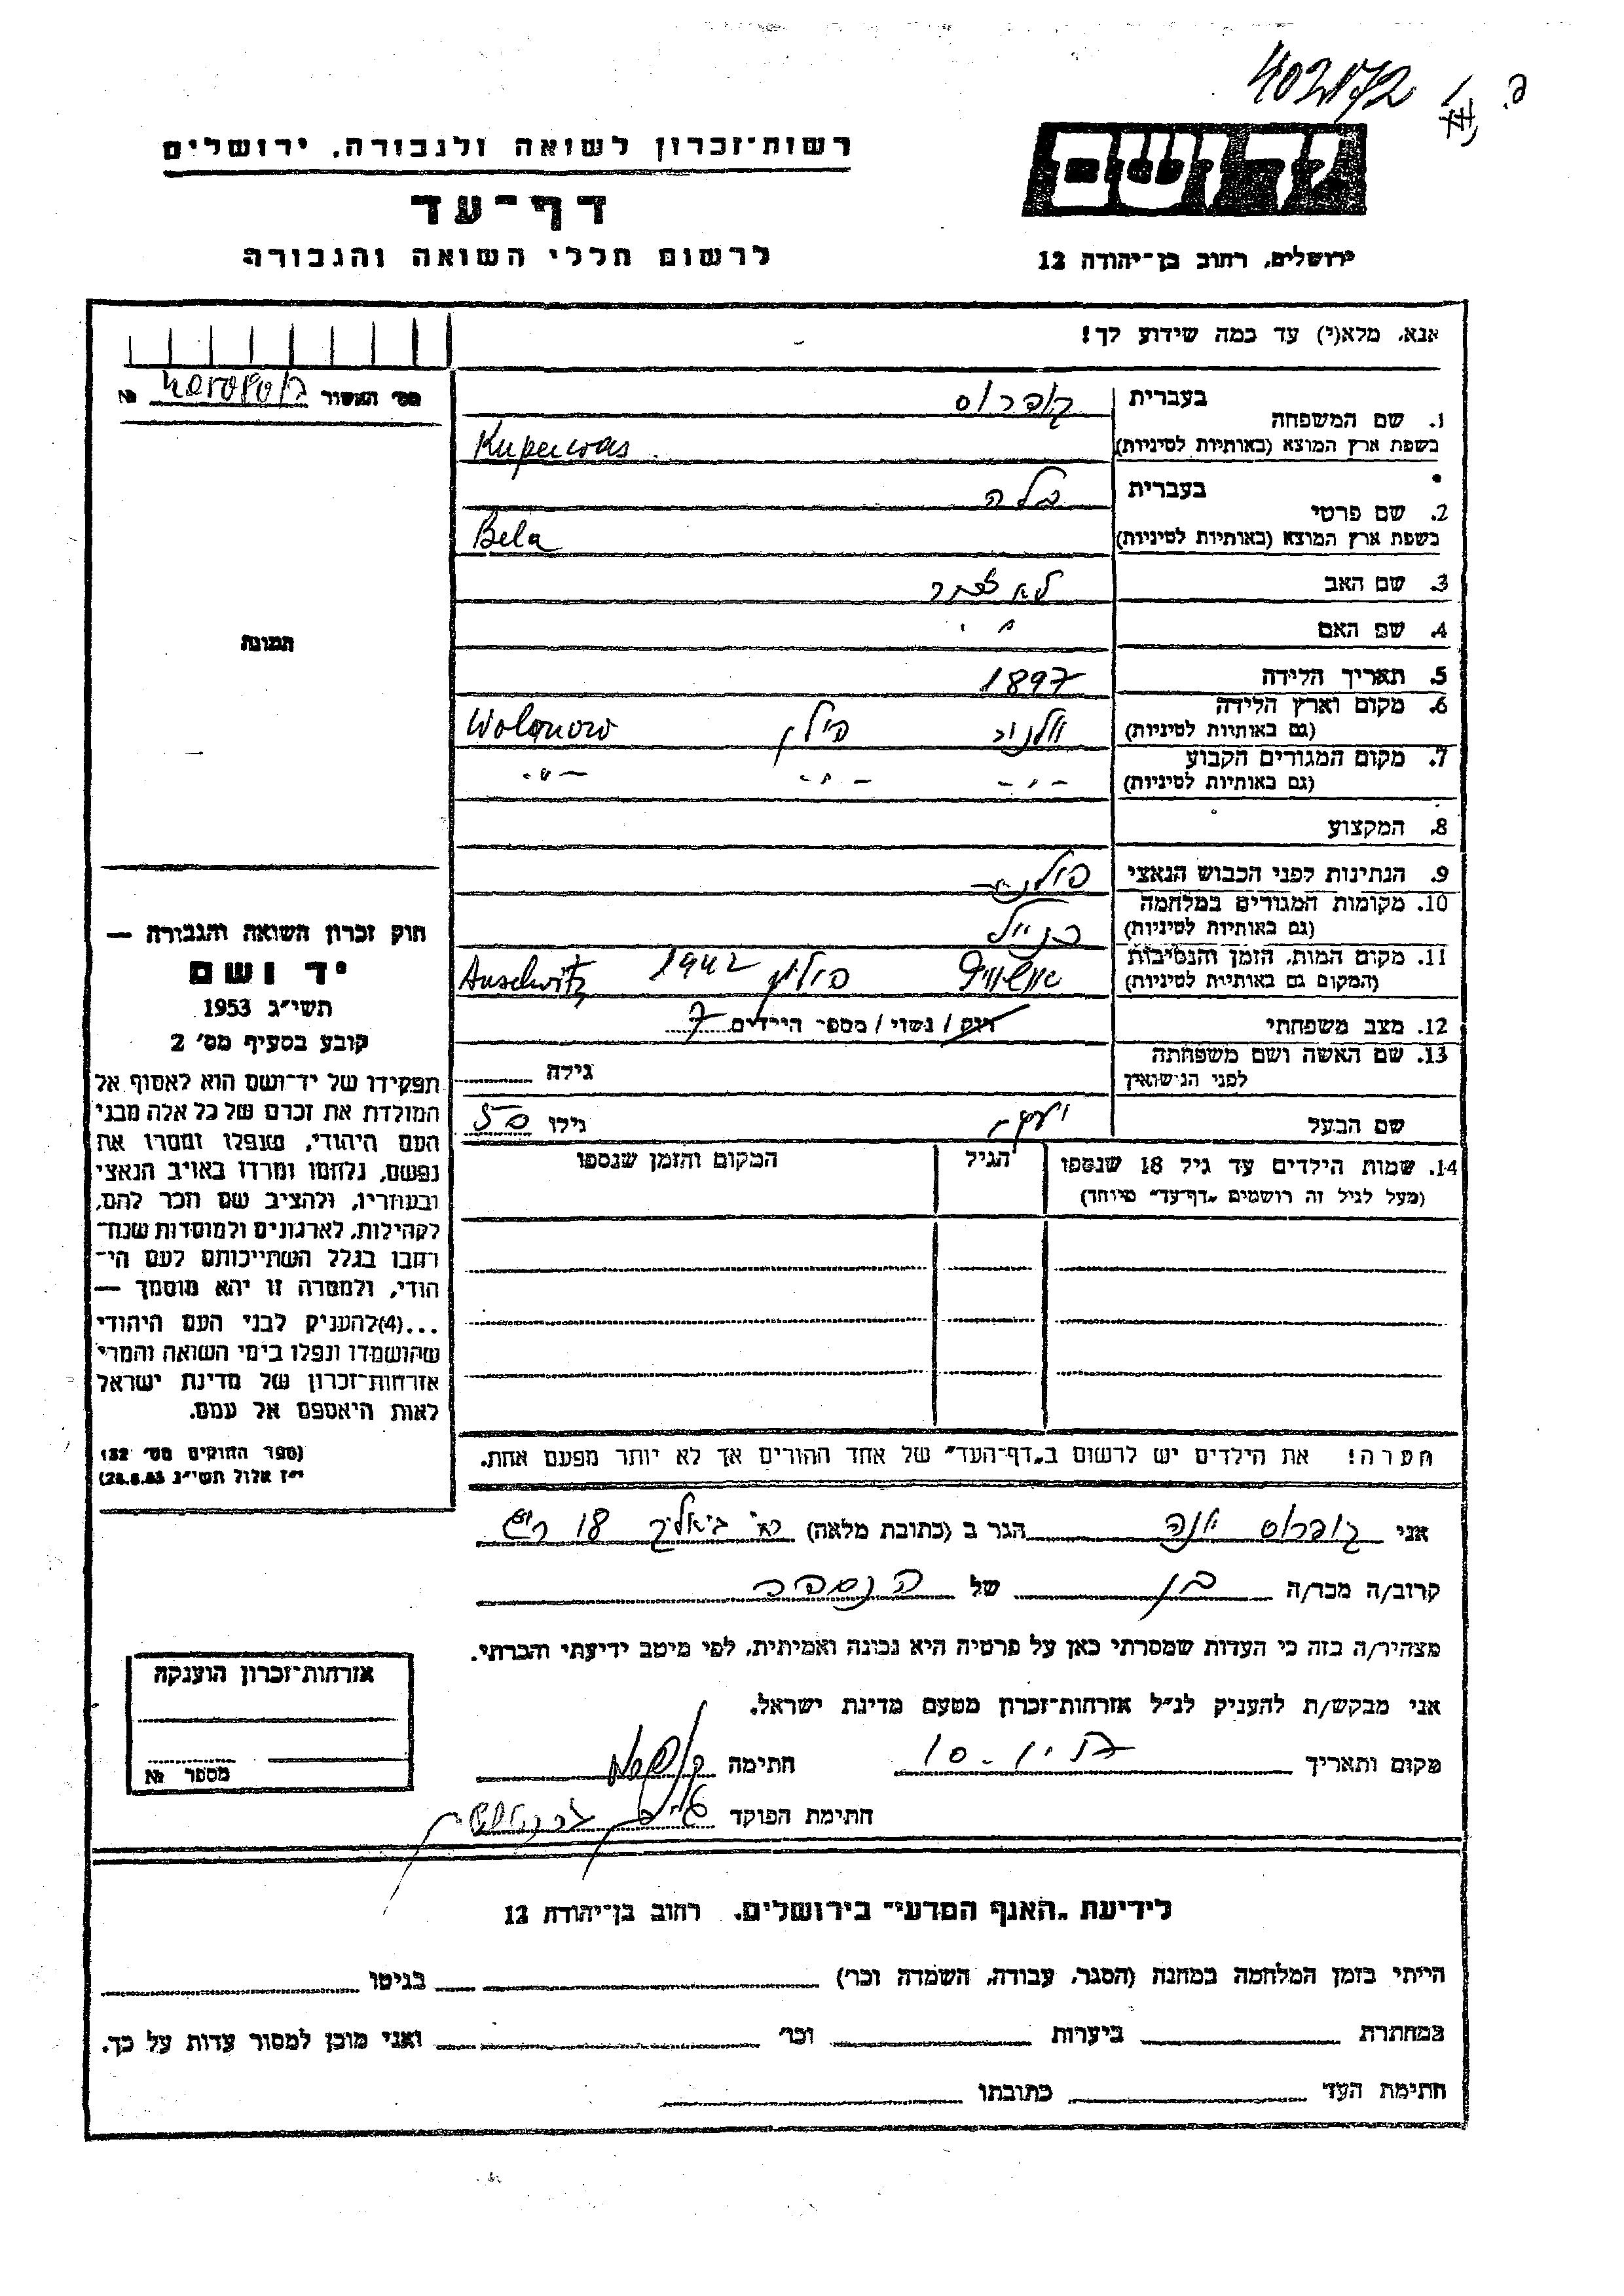 402872
רשות־זכרון לשואה ולגבורה, ירושלים
דף־עד
לרשום חללי השואה והגבורה
יד ושם
ירושלים, רחוב בן־יהודה 12
אנא, מלא(י) עד כמה שידוע לך!
מס׳ האשור №
1. שם המשפחה
בעברית
בשפת ארץ המוצא (באותיות לטיניות)
Kuperwas
2. שם פרטי
בעברית בלה
בשפת ארץ המוצא (באותיות לטיניות)
Bela
3. שם האב לא
4. שם האם
5. תאריך הלידה 1897
6. מקום וארץ הלידה
(גם באותיות לטיניות) פולין Wolanow
7. מקום המגורים הקבוע
(גם באותיות לטיניות)
8. המקצוע
9. הנתינות לפני הכבוש הנאצי פולנית
10. מקומות המגורים במלחמה
(גם באותיות לטיניות) כנ״ל
11. מקום המות, הזמן והנסיבות
(המקום גם באותיות לטיניות) אושוויץ פולין 1942 Auschwitz
12. מצב משפחתי רוק / נשוי / מספר הילדים 7
13. שם האשה ושם משפחתה
לפני הנישואין
גילה
שם הבעל יעקב גילו 50
14. שמות הילדים עד גיל 18 שנספו
(מעל לגיל זה רושמים „דף־עד״ מיוחד)
הגיל
המקום והזמן שנספו
תמונה
חוק זכרון השואה והגבורה —
יד ושם
תשי״ג 1953
קובע בסעיף מס׳ 2
תפקידו של יד־ושם הוא לאסוף אל
המולדת את זכרם של כל אלה מבני
העם היהודי, שנפלו ומסרו את
נפשם, נלחמו ומרדו באויב הנאצי
ובעוזריו, ולהציב שם וזכר להם,
לקהילות, לארגונים ולמוסדות שנח־
רבו בגלל השתייכותם לעם הי־
הודי, ולמטרה זו יהא מוסמך —
...(4) להעניק לבני העם היהודי
שהושמדו ונפלו בימי השואה והמרי
אזרחות־זכרון של מדינת ישראל
לאות היאספם אל עמם.
(ספר החוקים מס׳ 132
י״ז אלול תשי״ג 28.8.53)
הערה! את הילדים יש לרשום ב„דף־העד״ של אחד ההורים אך לא יותר מפעם אחת.
אני יונה הגר ב (כתובת מלאה) 18
קרוב/ה מכר/ה בן של הנספה
מצהיר/ה בזה כי העדות שמסרתי כאן על פרטיה היא נכונה ואמיתית, לפי מיטב ידיעתי והכרתי.
אני מבקש/ת להעניק לנ״ל אזרחות־זכרון מטעם מדינת ישראל.
מקום ותאריך חתימה
חתימת הפוקד
אזרחות־זכרון הוענקה
מספר №
לידיעת „האגף המדעי״ בירושלים, רחוב בן־יהודה 12
הייתי בזמן המלחמה במחנה (הסגר, עבודה, השמדה וכו׳) בגיטו
במחתרת ביערות וכו׳ ואני מוכן למסור עדות על כך.
חתימת העד כתובתו